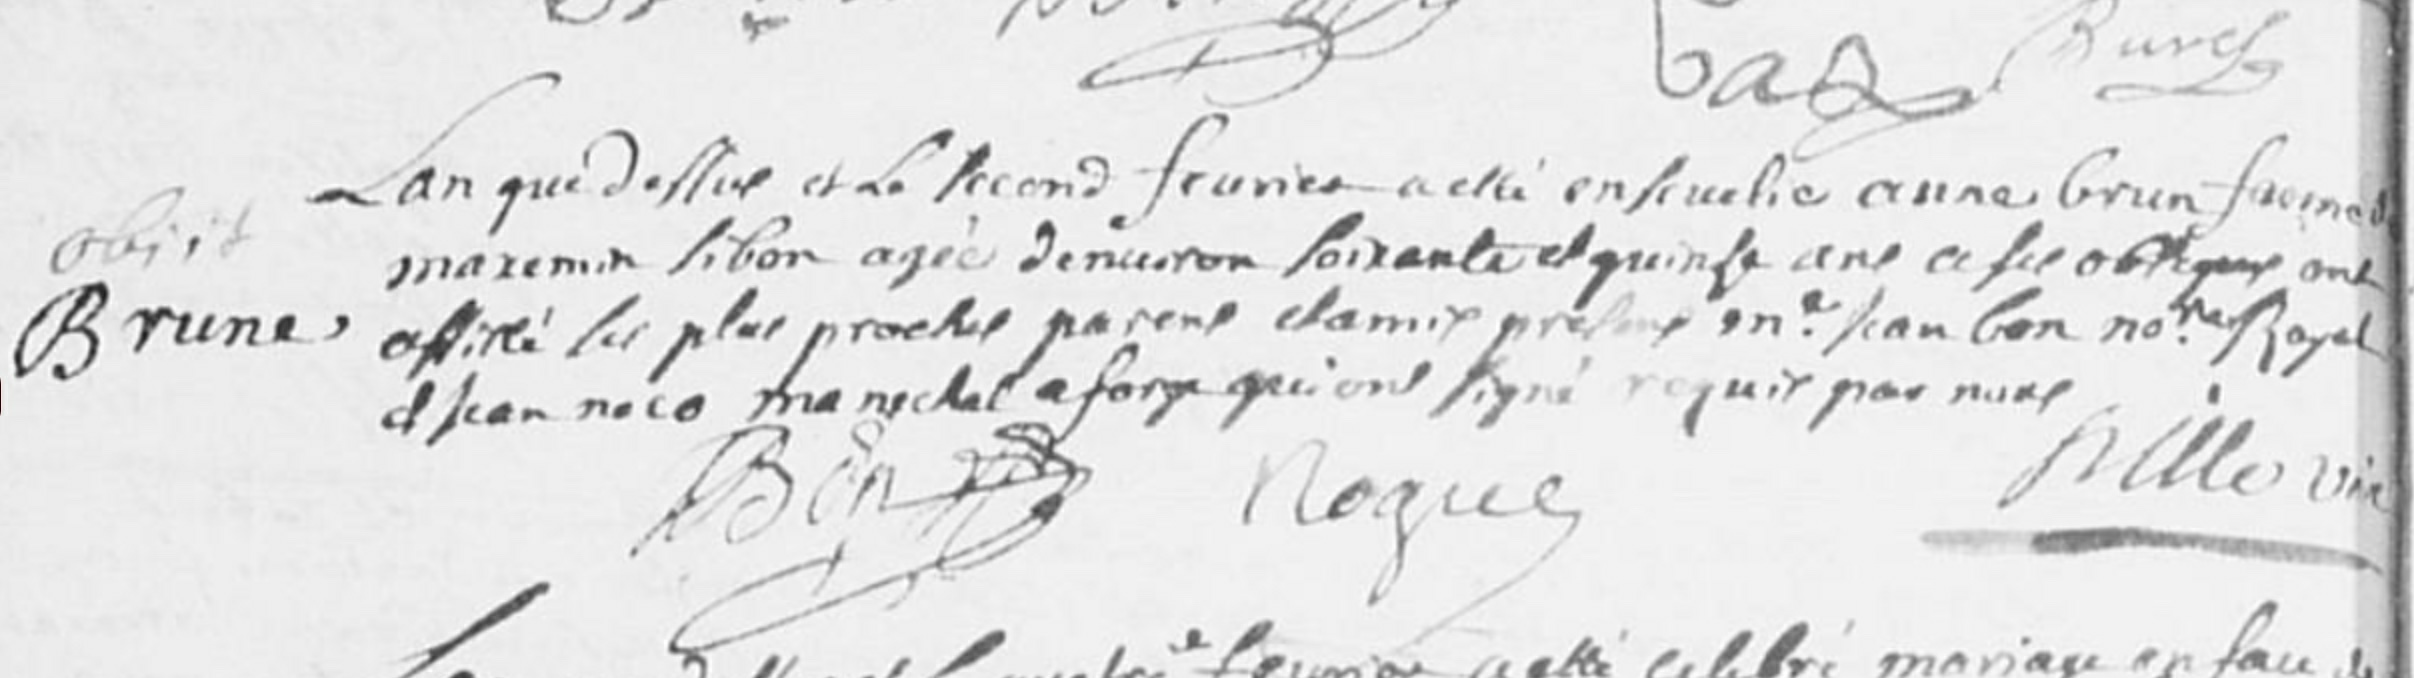 bas Bures
Lan que dessus et Le second feurier a esté enseuelie anne brun femme d
obiit
maxemin libon agée denuiron soixante et quinse ans a ses obseques ont
Brune
assisté ses plus proches parens et amis presens mr. Jean bon no.re Royal
et Jean noco marechal a forge qui ont signé requis par nous
Bon Nogues Mille vic
feurier a esté celebré mariage en face de